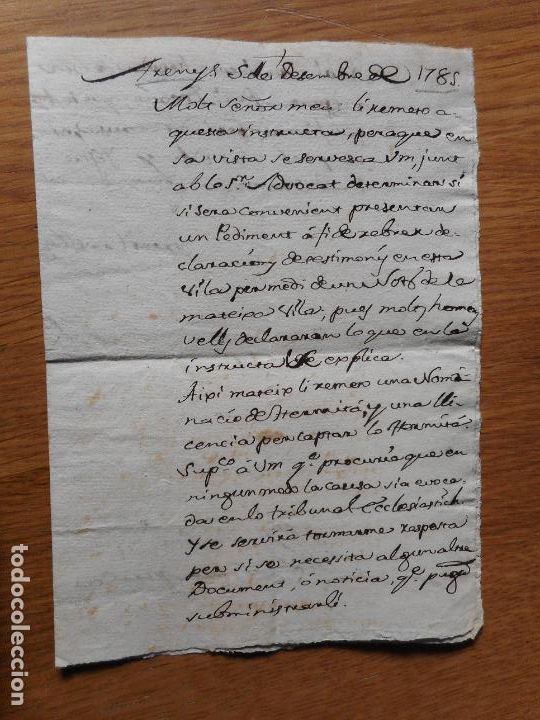 Arenys 5 de Desembre de 1785.
Molt Señor meu: li remeto a-
questa instructa, peraque en
sa vista se servesca Vm, junt
ab lo Sr. Advocat determinar si
si sera convenient presentar
un Pediment á fi de rebrer de-
claracions de testimonis en esta
Vila per medi de un Notº de la
mateixa Vila, pues molts homes
vells declararan lo que en la
instructa se explica.
Aixi mateix li remeto una Nomi-
nació de Hermitá, y una lli-
cencia per captar lo Hermitá.
Supco á Vm qe. procuria que en
ningun modo la causa sia evoca-
da en lo tribunal Ecclesiastich
y se servira tornarme resposta
per si se necessita algun altre
Document, ó noticia, qe. puga
subministrarli.
todocoleccion